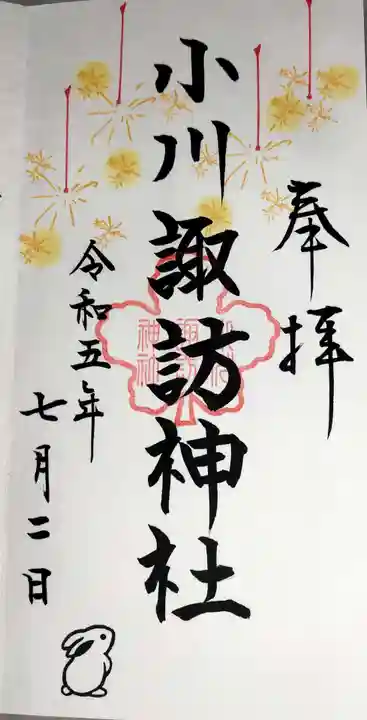 奉拝
小川諏訪神社
令和五年
七月二日